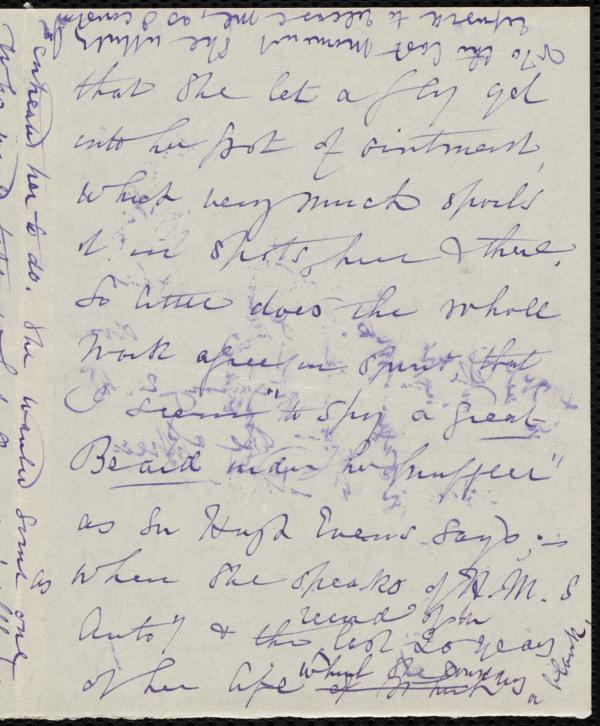 that she let a fly get
into her pot of ointment,
which very much spoils
it in spots, here & there.
So little does the whole
work agree in spirit, that
I seem "to spy a great
Beard under her muffler"
as Sir Hugh Evans says; —
when she speaks of H. M.'s
Auto'y & the record of the last 20 years
of her life which she counts as a blank,
To the last moment she utterly
refused to release me, as I
entreated her to do. She wanted some one